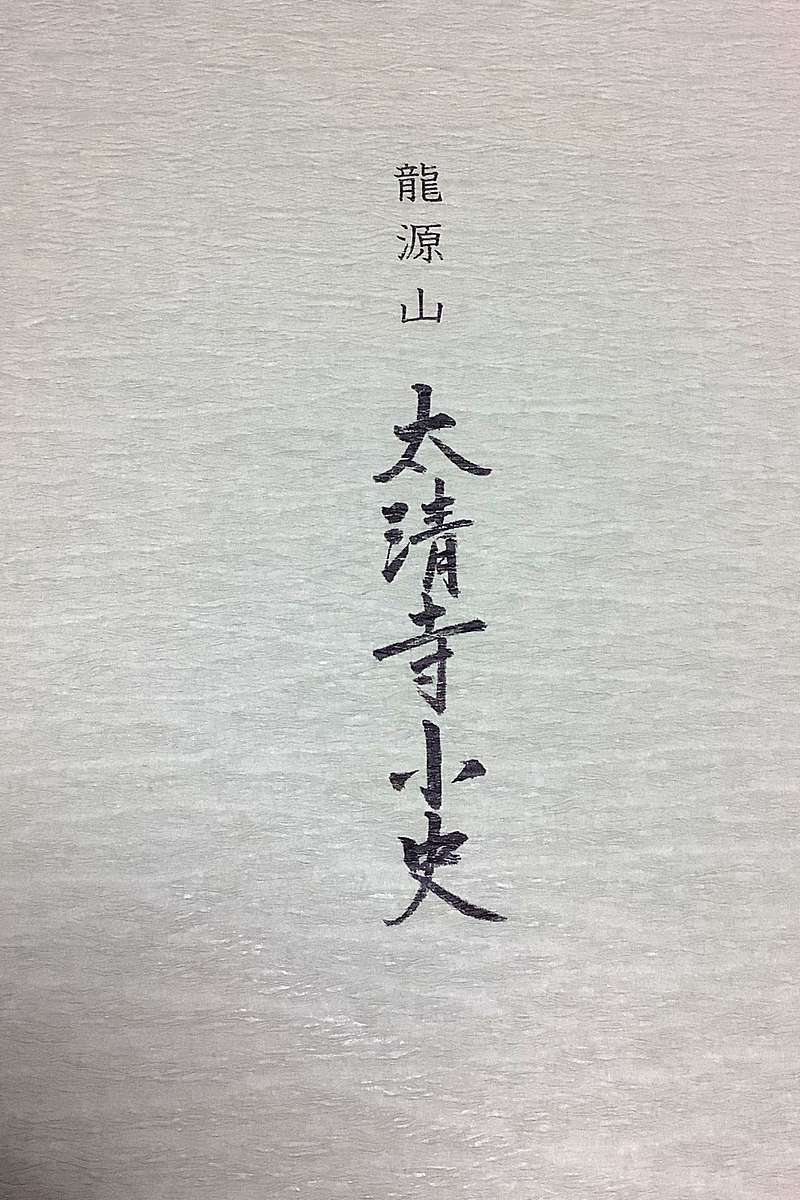 龍源山 太清寺小史